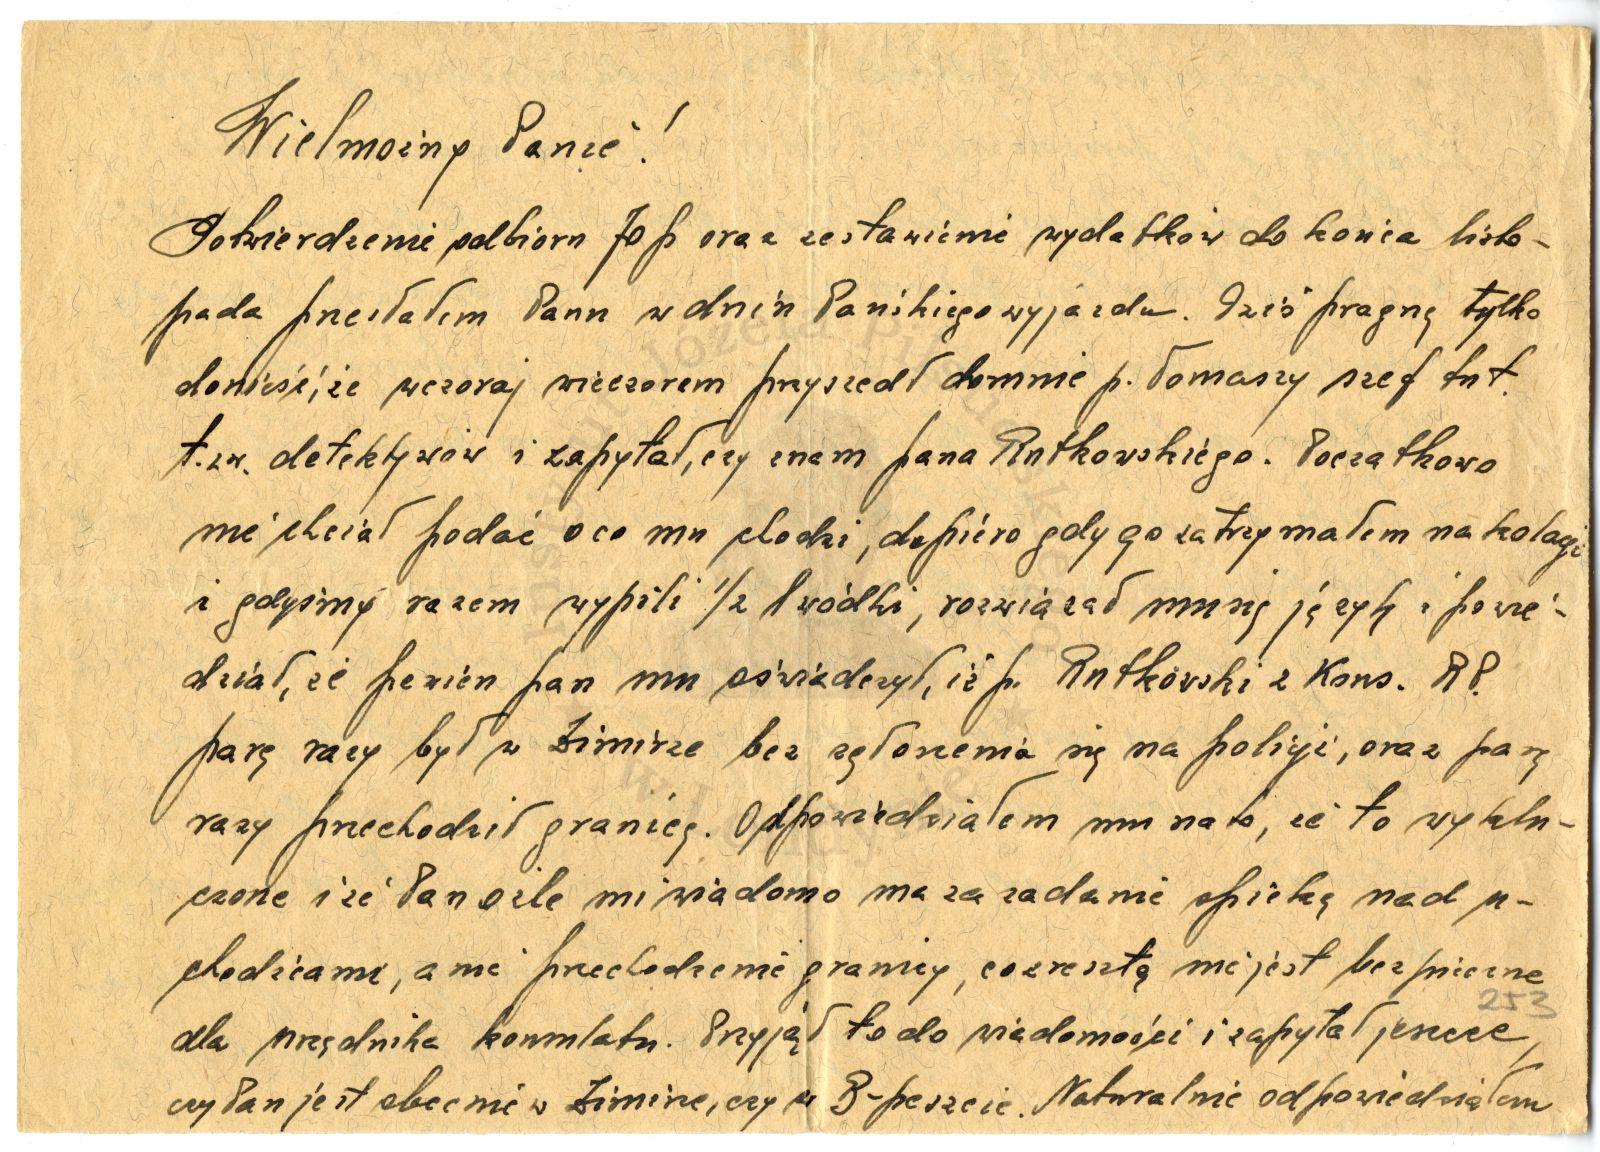 Wielmożny Panie!
Potwierdzenie odbioru 70 p oraz zestawienie wydatków do końca listo-
pada przesłałem Panu w dniu Pańskiego wyjazdu. Dziś pragnę tylko
donieść, że wczoraj wieczorem przyszedł do mnie p. Tomaszy szef tut.
t.zw. detektywów i zapytał, czy znam pana Rutkowskiego. Początkowo
nie chciał podać o co mu chodzi, dopiero gdy go zatrzymałem na kolację
i gdyśmy razem wypili 1/2 l wódki, rozwiązał mu się język i powie-
dział, że pewien pan mu oświadczył, iż p. Rutkowski z Kons. R.P.
parę razy był w Zimirze bez zgłoszenia się na policji, oraz parę
razy przechodził granicę. Odpowiedziałem mu na to, że to wyklu-
czone i że Pan o ile mi wiadomo ma za zadanie opiekę nad u-
chodźcami, a nie przechodzenie granicy, co zresztą nie jest bezpieczne
dla urzędnika konsulatu. Przyjął to do wiadomości i zapytał jeszcze,
czy Pan jest obecnie w Zimirze, czy w B-peszcie. Naturalnie odpowiedziałem
253